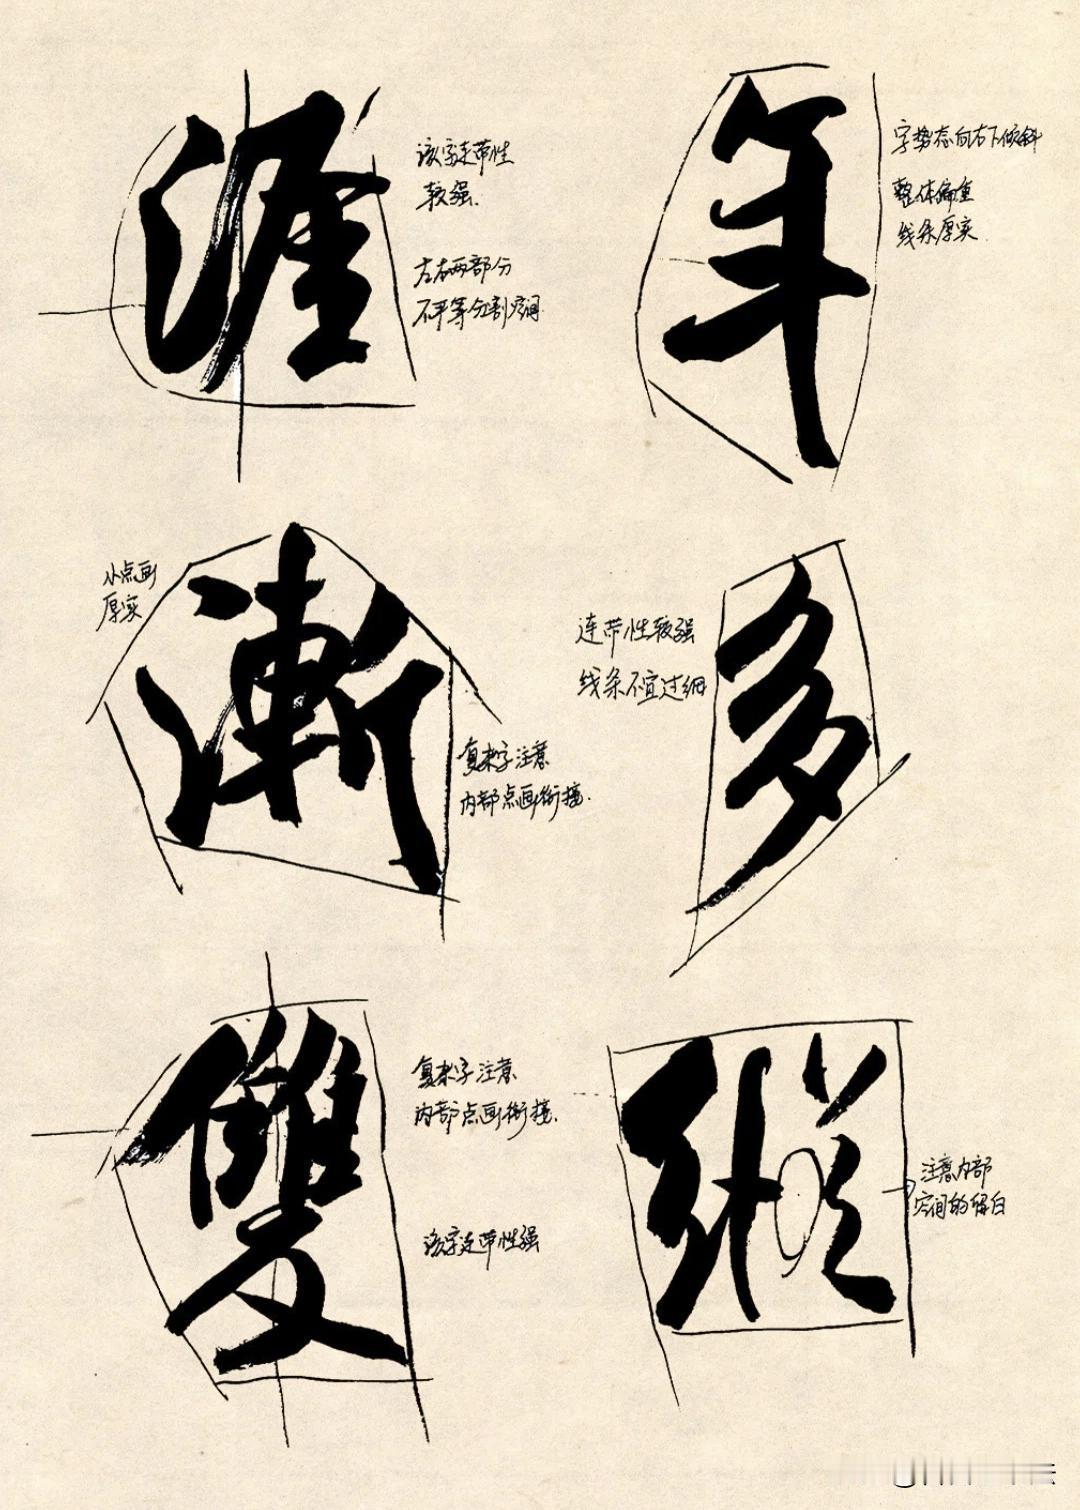 涯
该字连带性
较强.
左右两部分
不平等分割空间.
年
字势态向右下倾斜
整体偏重
线条厚实.
小点画
厚实
漸
复杂字注意
内部点画衔接.
连带性较强
线条不宜过细
多
雙
复杂字注意
内部点画衔接.
该字连带性强
縱
注意内部
空间的留白